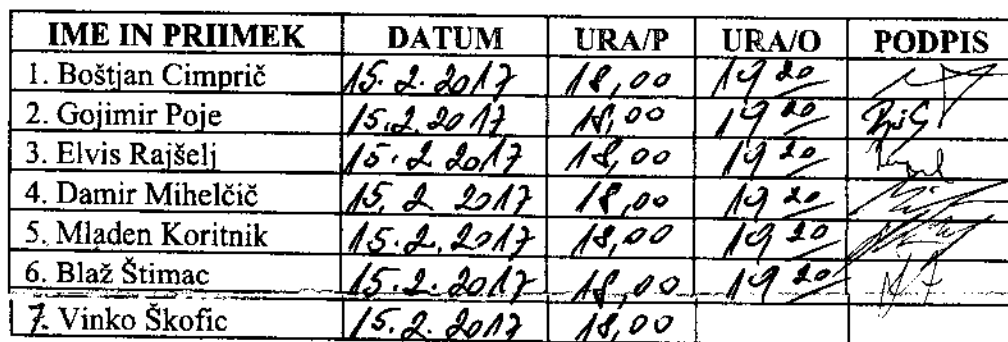 IME IN PRIIMEK DATUM URA/P URA/O PODPIS
1. Boštjan Cimprič 15.2.2017 18,00 19 20
2. Gojimir Poje 15.2.2017 18,00 19 20
3. Elvis Rajšelj 15.2.2017 18,00 19 20
4. Damir Mihelčič 15.2.2017 18,00 19 20
5. Mladen Koritnik 15.2.2017 18,00 19 20
6. Blaž Štimac 15.2.2017 18,00 19 20
7. Vinko Škofic 15.2.2017 18,00